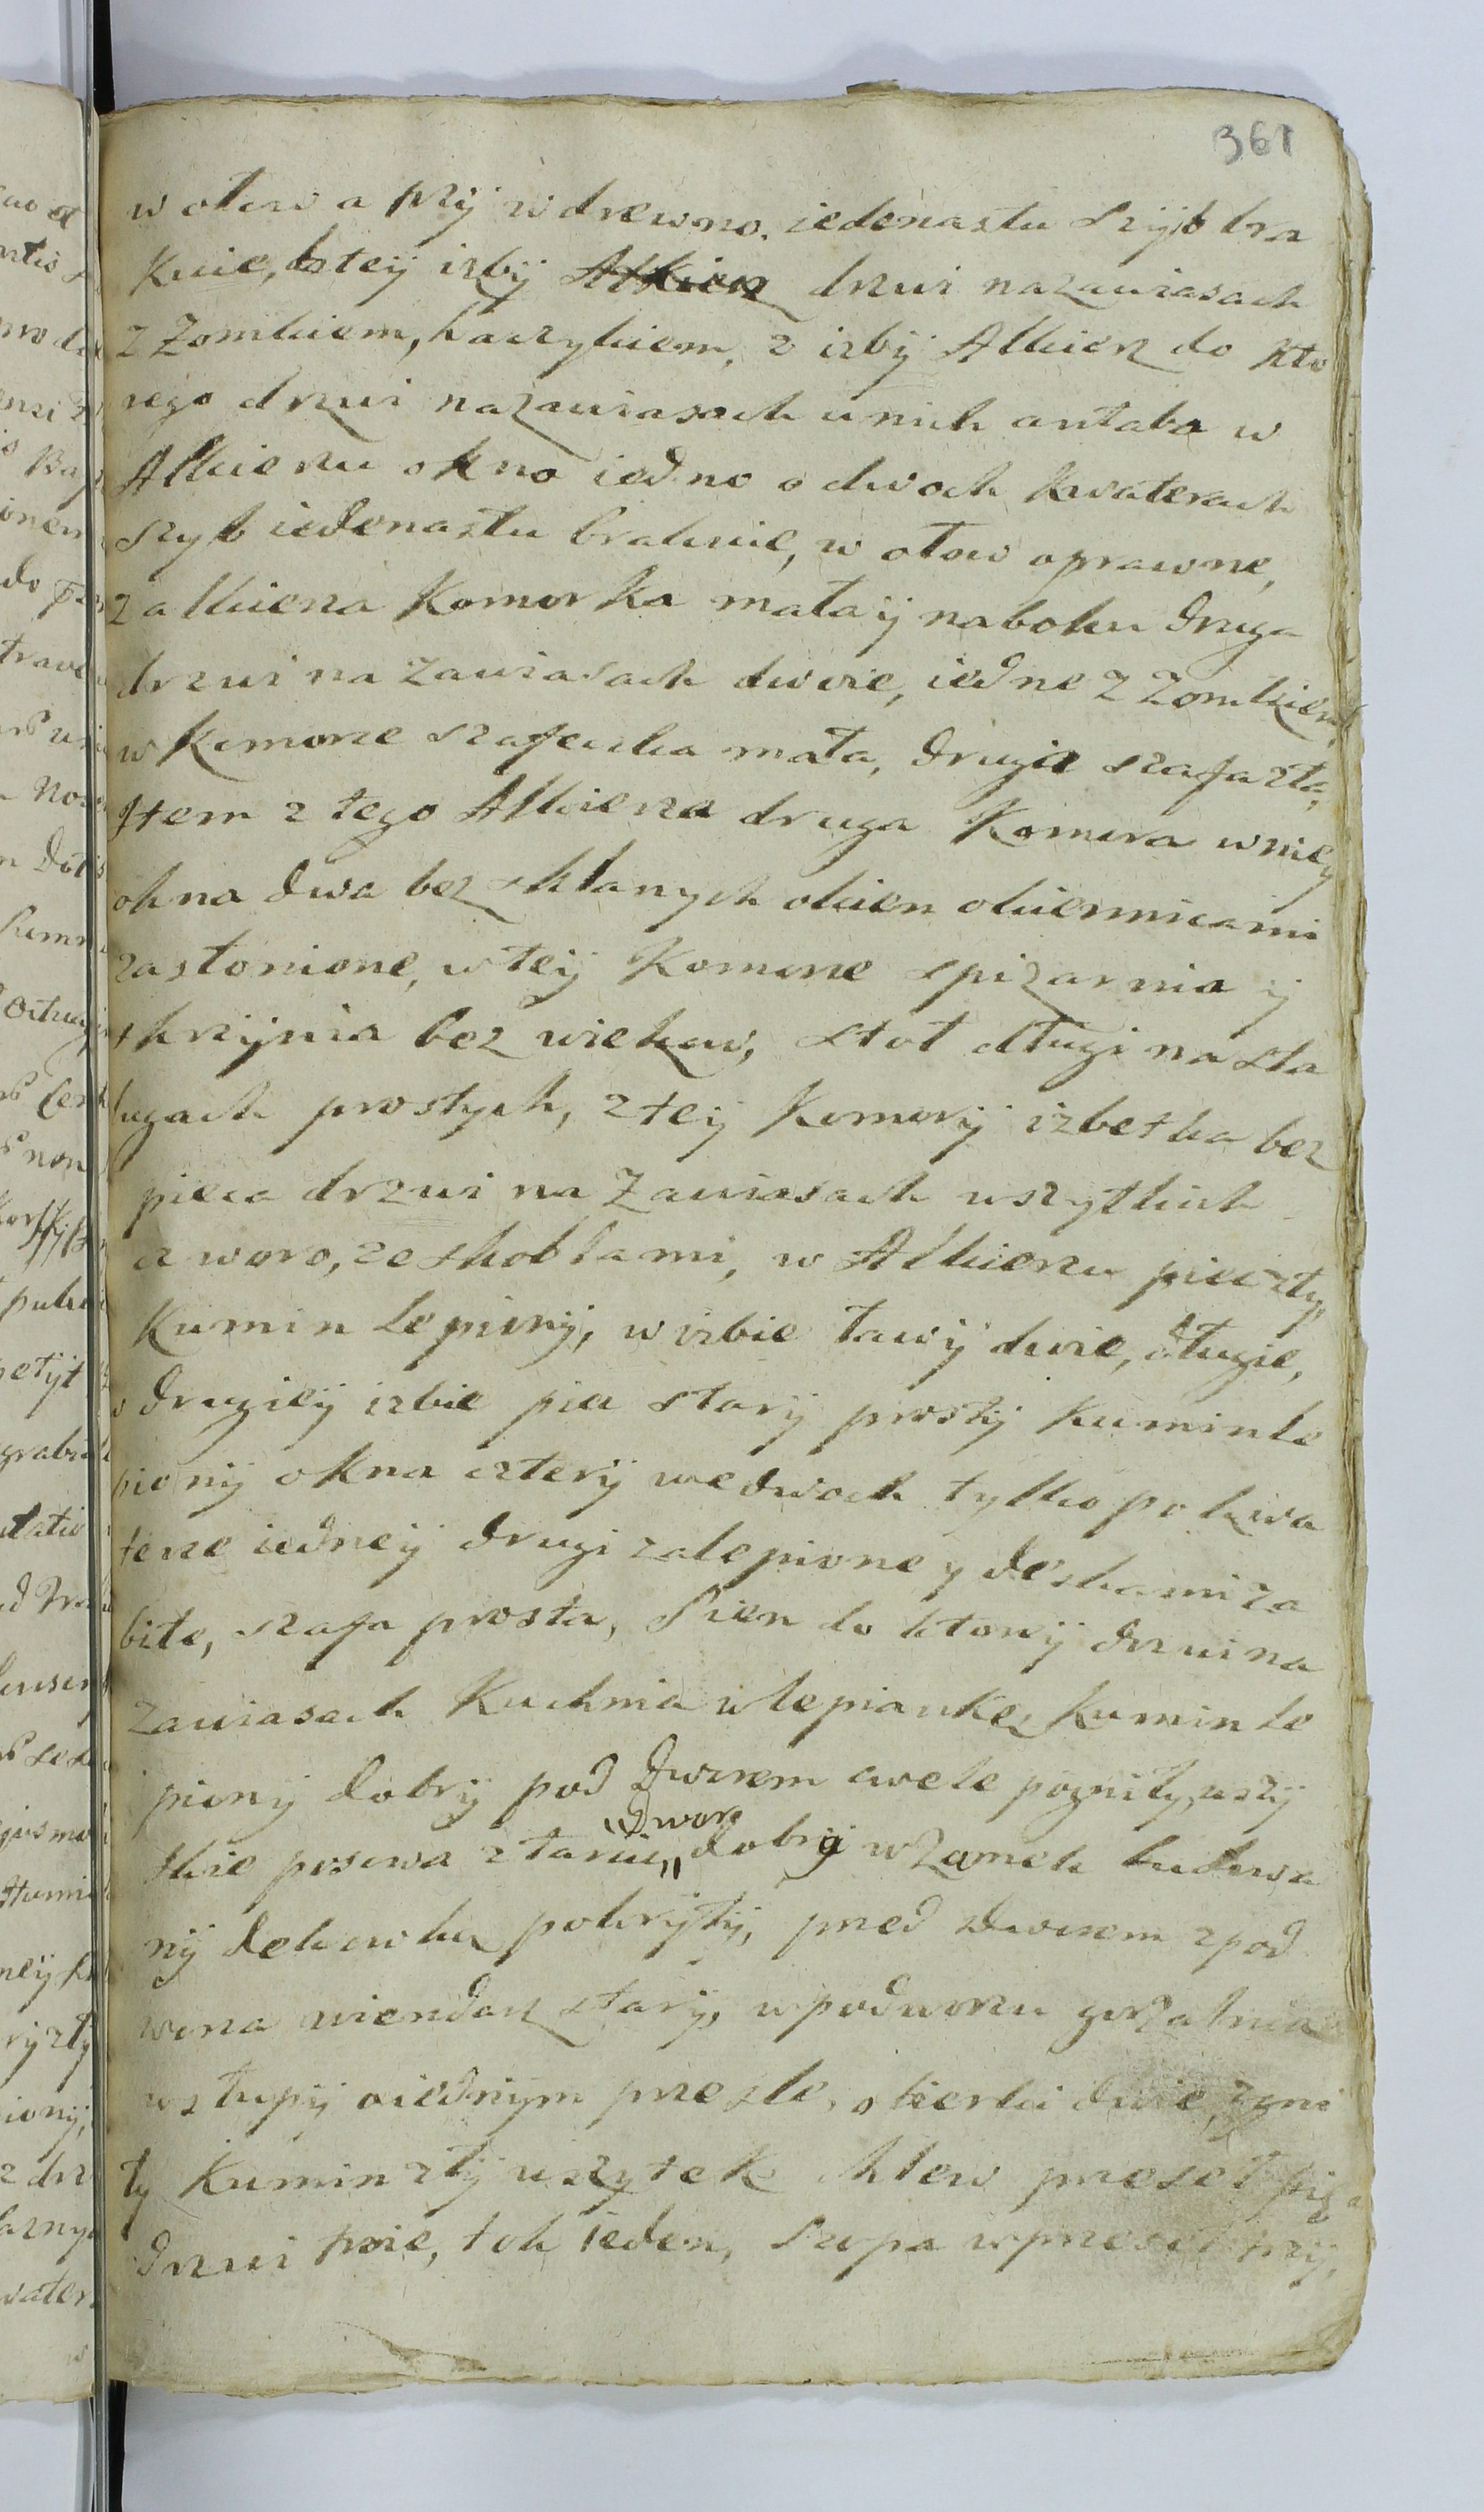 361
w ołow a przy w drewno. iedenastu szyb bra
kuie, do teÿ izbÿ Alkierz drzwi nazawiasach
z Zomkiem, haczykiem, z izbÿ Alkierz do kto
rego drzwi nazawiasach u nich antaba w
Alkierzu okno iedno o dwoch kwaterach
szyb iedenastu brakuie, w ołow oprawne,
z alkierza Komorka mała ÿ naboku druga
drzwi na zawiasach dwoie, iedne z Zomkiem
w komorze szafeczka mała, druga szafa zła,
Item z tego Alkierza druga Komora wnieÿ
okna dwa bez sklanych okien okiennicami
zasłonione, w teÿ Komorze spizarnia ÿ
skrzÿnia bez wieka, stoł długi na sta
lugach prostych, z teÿ Komorÿ izbetka bez
pieca drzwi na Zawiasach wszytkich
czworo, ze skoblami, w Alkierzu piec zły
Kumin lepionÿ, w izbie ławÿ dwie, długie,
w drugieÿ izbie piec starÿ prostÿ kumin le
pionÿ okna czterÿ we dwoch tylko po kwa
terze iedneÿ drugi zalepione y deskami za
bite, szafa prosta, Sien do ktorÿ drzwi na
zawiasach Kuchnia w lepiankę, kumin le
pionÿ dobrÿ pod Dworem cwele pogniły, wszÿ
stkie posowa z tarcic, Dwor dobrÿ w Zamek budowa
nÿ dekowka pokrÿtÿ, pried dworem spod
wora wiendarz starÿ, w podworzu gorzalnia
w słupÿ o iednÿm przesle, okienka dwie, zgni
ły Kumin złÿ wszytek chlew
drzwi troie, tok ieden, Szopa